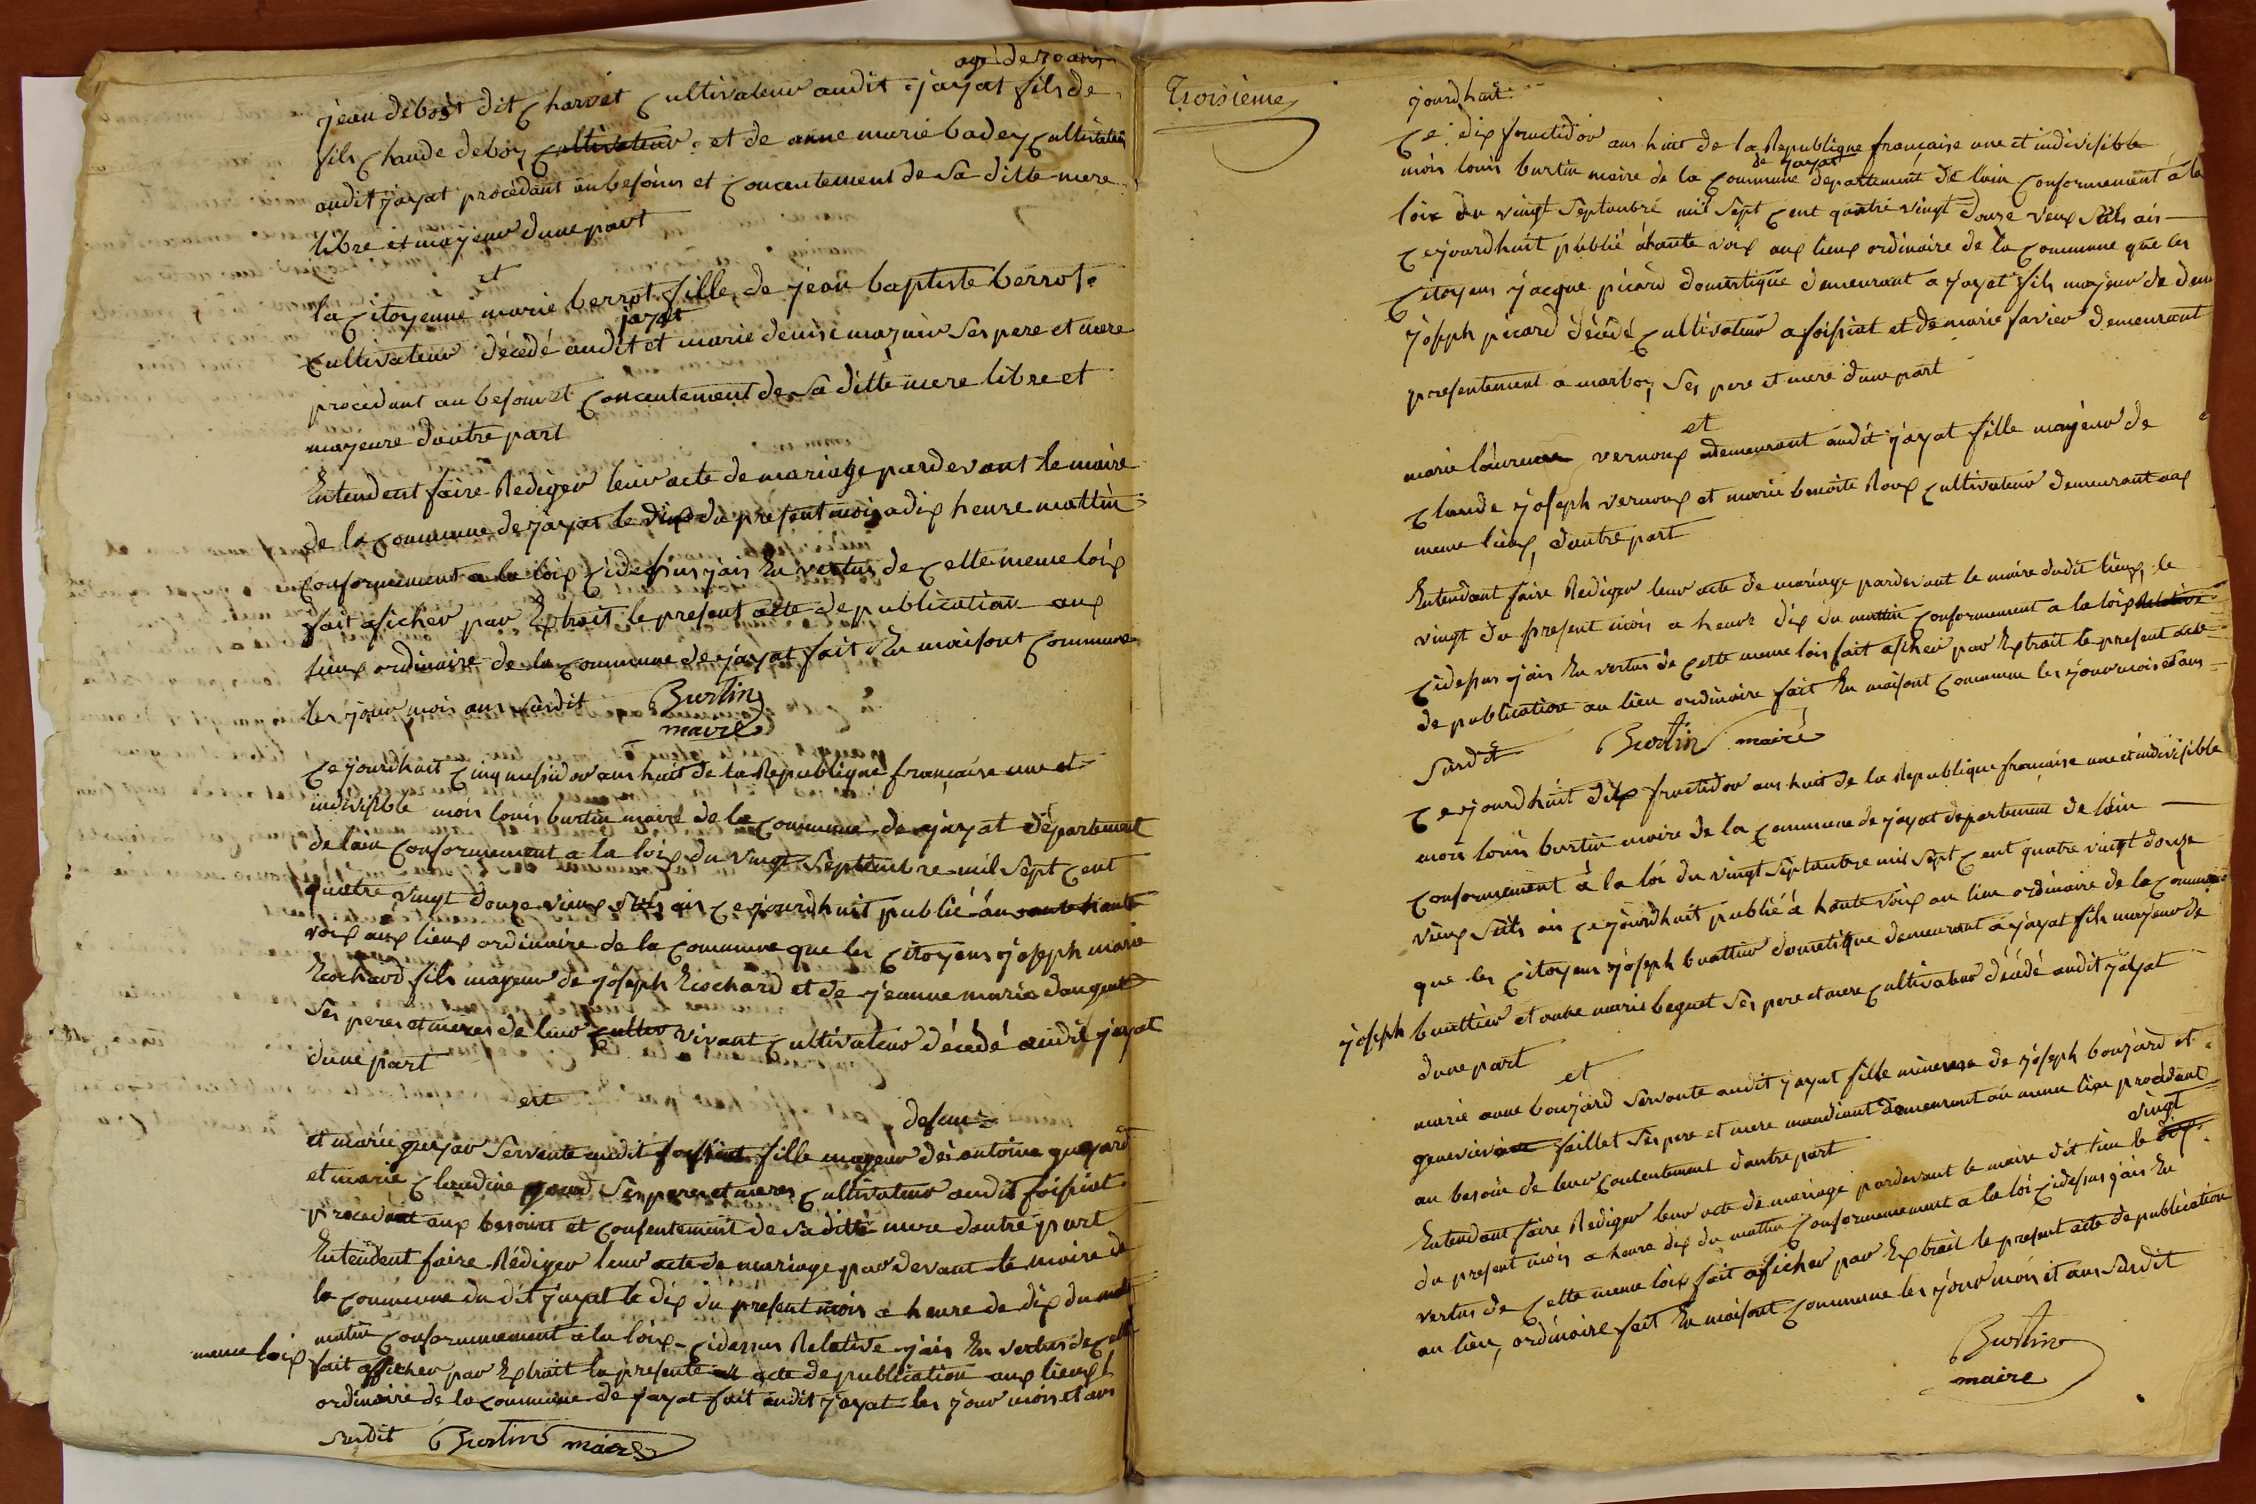 agé de 70 ans
jean débost dit Charvet Cultivateur audit jayat fils de
fils Claude deboz Cultivateur et de anne marie badey Cultivateur
audit jayat procédant au besoins et Concentement de Sa ditte mere
libre et mayeur dune part
et
la Citoyenne marie berrot fille de jean baptiste berrot
jayat
Cultivateur décédé audit et marie denise mazuir Ses pere et mere
procedant au besoin et Concentement de Sa ditte mere libre et
mayeure dautre part
Entendent faire Rediger leur acte de mariage pardevant le maire
de la Commune de jayat le dix du present mois a dix heure mattin
Conformement a la loix Cidessus jais En vertus de Cette meme loix
fait aficher par Extrait le present acte de publication aux
lieux ordinaire de la Commune de jayat fait En maisont Commune
les jour mois ans Susdit Burtin
maire
Cejourdhuit Cinq messidor ans huit de la Republique française une et
indivisible mois louis burtin maire de la Commune de jayat département
de lain Conformement a la loix du vingt Septembre mil Sept Cent
quatre vingt douze vieux Stils ais Cejourdhuit publié a haute
voix aux lieux ordinaire de la Commune que les Citoyens joseph marie
Ecochard fils mayeur de joseph Ecochard et de jeanne marie
Ses peres et meres de leur Cultiv vivant Cultivateur décédé audit jayat
dune part
et
defeu
et marie guyar Servente audit foissiat fille mayeur des antoine guyard
et marie Claudine Ses peres et meres Cultivateur audit foissiat
procedant aux besoins et Consentement de Sa ditte mere dautre part
Entendent faire Rédiger leur acte de mariage par devant le maire de
la Commune du dit jayat le dix du present mois a heure de dix du mat
matin Conformement a la loix Cidessus Relative jais En vertus de Cette
meme loix fait afficher par Extrait la presente acte de publication aux lieux
ordinaire de la Commune de jayat fait audit jayat les jour mois et ans
Susdit Burtin maire
Troisieme
jourdhuit
Ce dix fructidor ans huit de la Republique française une et indivisible
de jayat
mois louis burtin maire de la Commune département de lain Conformement à la
loix du vingt Septembre mil Sept Cent quatre vingt douze vieux Stils ais
Cejourdhuit publié à haute voix aux lieux ordinaire de la Commune que les
Citoyens jacque picard domestique demeurant a jayat fils mayeur de deu
joseph picard décédé Cultivateur a foissiat et de marie favier demeurant
presentement a marboz Ses pere et mere dune part
et
marie laurence vernoux demeurant audit jayat fille mayeur de
Claude joseph vernoux et marie benoite Roux Cultivateur demeurant aux
meme lieux dautre part
Entendant faire Rediger leur acte de mariage pardevant le maire dudit lieux le
vingt du present mois a heure dix du mattin Conformement a la loix Relative
Cidessus jais En vertus de Cette meme lois fait aficher par Extrait le present acte
de publication au lieu ordinaire fait En maisont Commune les jour mois et ans
Susdit Burtin maire
Cejourdhuit dix fructidor ans huit de la Republique francaise une et indivisible
mois louis burtin maire de la Commune de jayat departement de lain
Conformement à la loi du vingt Septembre mil Sept Cent quatre vingt douze
vieux Stils ais Cejourdhuit publié à haute voix au lieu ordinaire de la Commune
que les Citoyens joseph buattier domestique demeurant a jayat fils mayeur de
joseph buattier et anne marie beguet Ses pere et mere Cultivateur décédé audit jayat
dune part
et
marie anne boujard Servante audit jayat fille mineure de joseph boujard et
genevieve faillet Ses pere et mere mandiant demeurant au meme lieu procédant
au besoin de leur Contentement dautre part
vingt
Entendant faire Rediger leur acte de mariage pardevant le maire dit lieu le dix
du present mois a heure dix du mattin Conformement a la loi Cidessus jais En
vertus de Cette meme loix fait aficher par Extrait le present acte de publication
au lieu ordinaire fait En maisont Commune les jour mois et ans Susdit
Burtin
maire